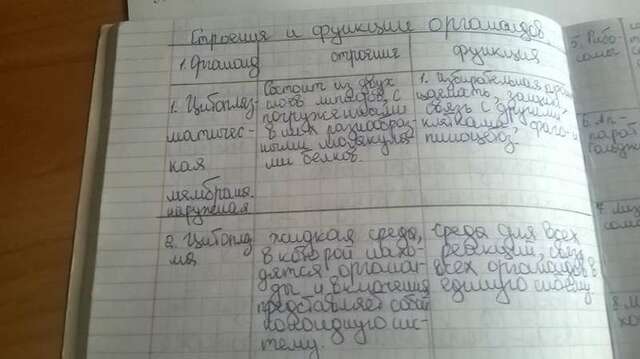 Строения и функции органоидов.
1. Органоид строение функция
1. Цитоплаз-
матичес-
кая
мембрана.
наружная
Состоит из двух
слоев липидов с
погруженными
в них разнообраз-
ными молекула-
ми белков.
1. избирательная прони
цаемость, защит
связь с другими
клетками, фаго- и
пиноцедоз,
2. Цитопла
ма
жидкая среда,
в которой нахо-
дятся органои-
ды и включения
представляет собой
колоидную сис-
тему.
среда для всех
реакций, связ
всех органоидов в
единую систему
5. Рибо-
сома
6. Ап-
парат
Гольджи
7.
8.